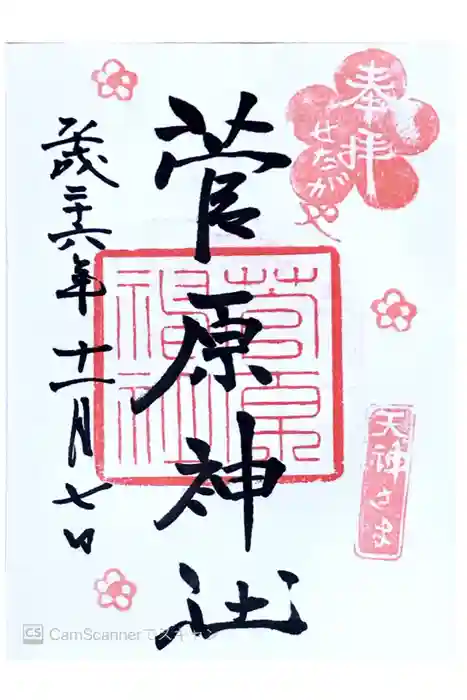 奉拝
せたがや
菅原神社
菅原
神社
天神さま
平成二十六年十一月七日
CS CamScannerでスキャン